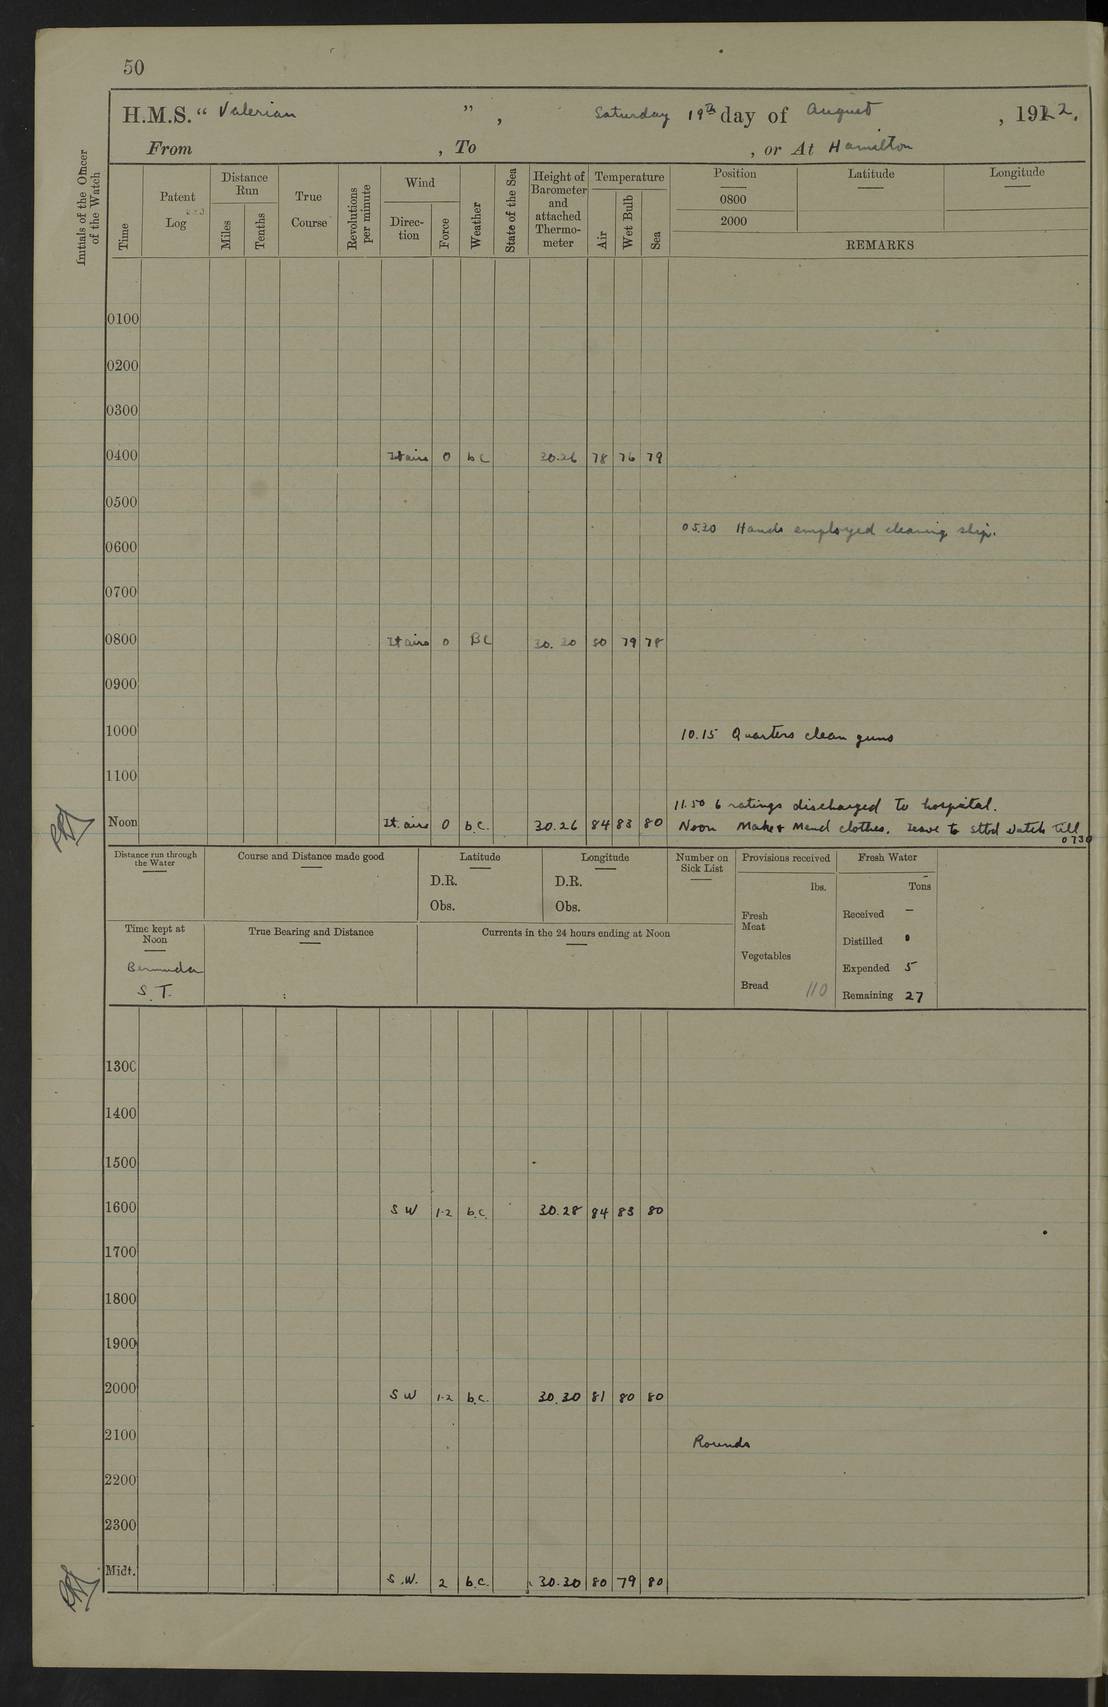 50
H.M.S. “ Valerian ” , Saturday 19th day of August , 1922.
From , To , or At Hamilton
Initials of the Officer of the Watch
Time
Patent Log
Distance Run
Miles
Tenths
True Course
Revolutions per minute
Wind
Direc-tion
Force
Weather
State of the Sea
Height of Barometer and attached Thermo-meter
Temperature
Air
Wet Bulb
Sea
Position Latitude Longitude
0800
2000
REMARKS
0100
0200
0300
0400 lt airs 0 bc 30.26 78 76 79
0500
0530 Hands employed cleaning ship.
0600
0700
0800 lt airs 0 BC 30.30 80 79 78
0900
1000 10.15 Quarters clean guns
1100
11.50 6 ratings discharged to hospital.
Noon lt. airs 0 b.c. 30.26 84 83 80 Noon Make & Mend clothes. Leave to stbd watch till
0730
Distance run through the Water
Course and Distance made good
Latitude
D.R.
Obs.
Longitude
D.R.
Obs.
Number on Sick List
Provisions received
lbs.
Fresh Meat
Vegetables
Bread 110
Fresh Water
Tons
Received –
Distilled 0
Expended 5
Remaining 27
Time kept at Noon
Bermuda
S.T.
True Bearing and Distance
Currents in the 24 hours ending at Noon
1300
1400
1500
1600 S W 1-2 b.c. 30.28 84 83 80
1700
1800
1900
2000 S W 1-2 b.c. 30.30 81 80 80
2100 Rounds
2200
2300
Midt. S.W. 2 b.c. 30.30 80 79 80